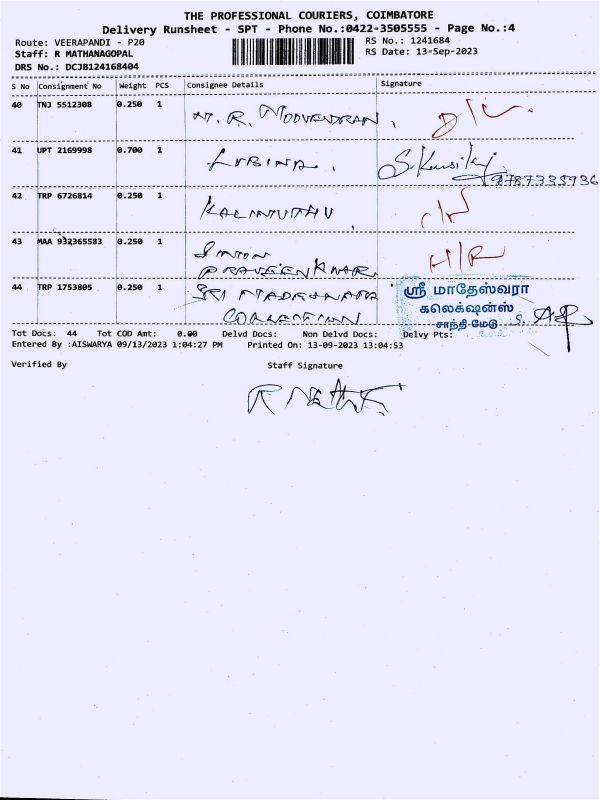 THE PROFESSIONAL COURIERS, COIMBATORE
Delivery Runsheet - SPT - Phone No.:0422-3505555 - Page No.:4
Route: VEERAPANDI - P20 RS No.: 1241684
Staff: R MATHANAGOPAL RS Date: 13-Sep-2023
DRS No.: DCJB124168404
S No Consignment No Weight PCS Consignee Details Signature
40 TNJ 5512308 0.250 1 N. R. MOOVENDRAN, D/L.
41 UPT 2169998 0.700 1 LUBINA, 9787335936
42 TRP 6726814 0.250 1 KALIMUTHU
43 MAA 932365583 0.250 1 H/R
PRAVEEN KUMAR
44 TRP 1753805 0.250 1 SRI MADESWARA
COLLECTION
ஸ்ரீ மாதேஸ்வரா
கலெக்ஷன்ஸ்
சாந்தி மேடு
Tot Docs: 44 Tot COD Amt: 0.00 Delvd Docs: Non Delvd Docs: Delvy Pts:
Entered By :AISWARYA 09/13/2023 1:04:27 PM Printed On: 13-09-2023 13:04:53
Verified By Staff Signature